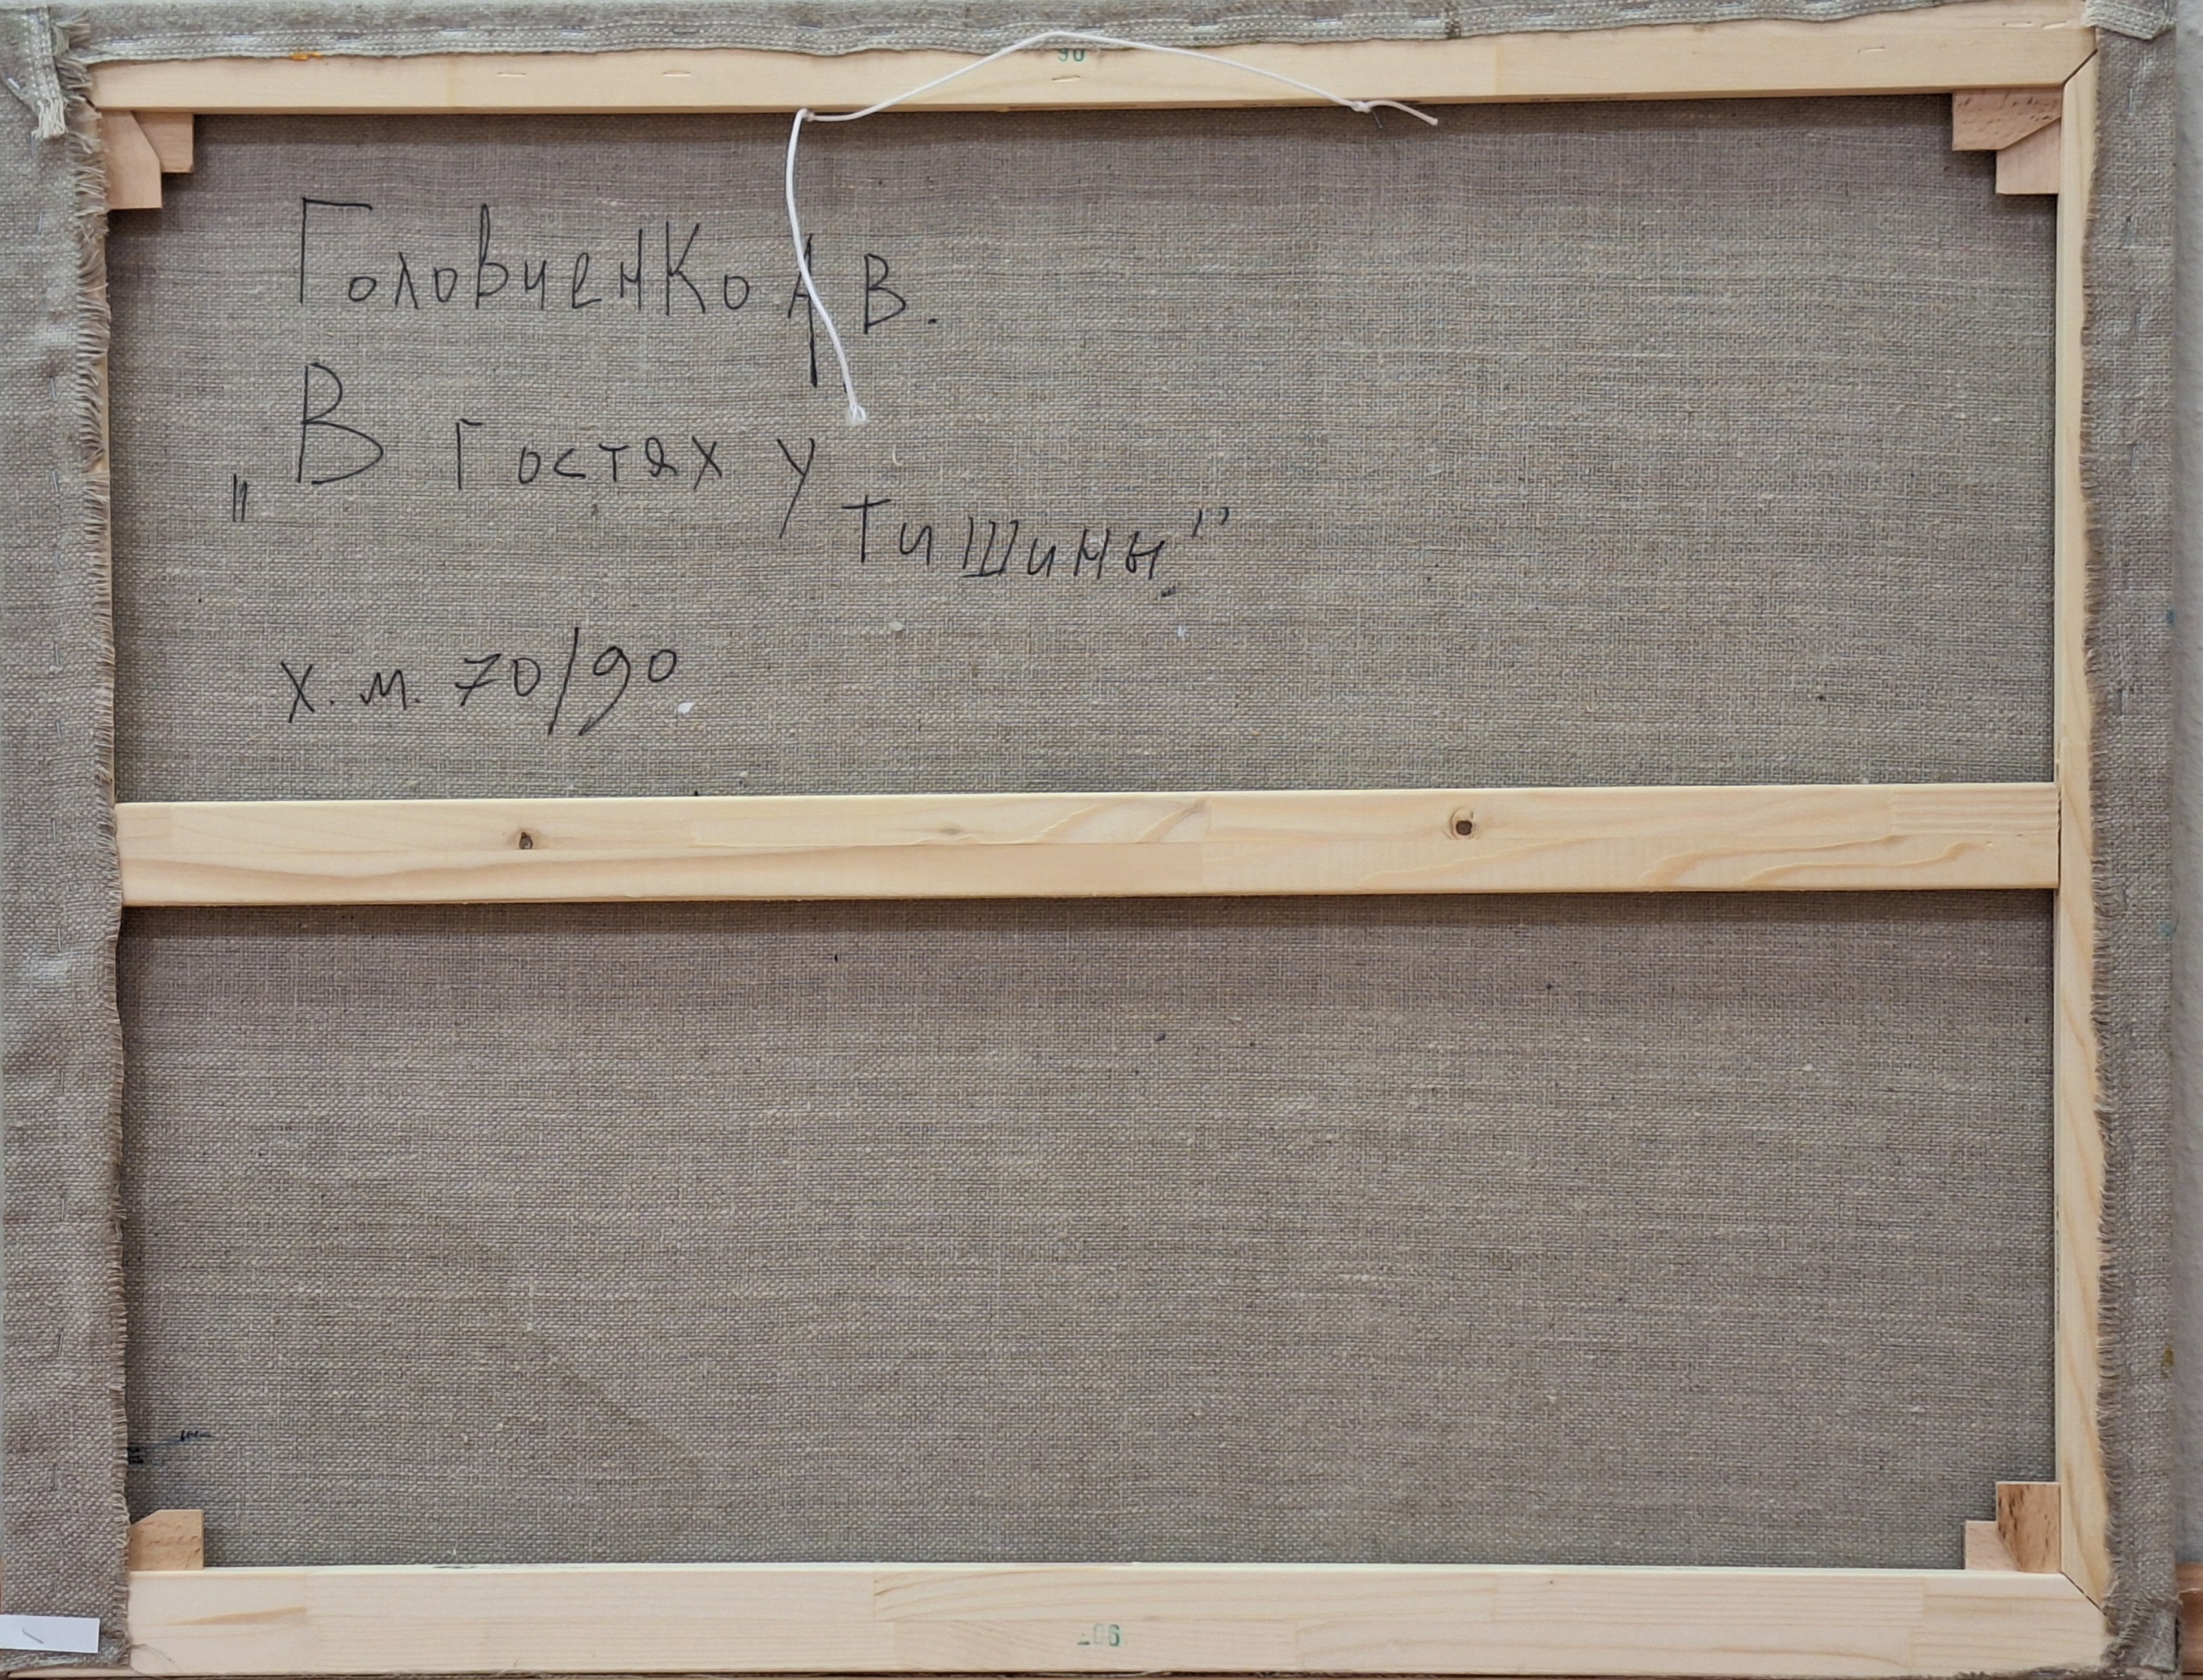 90
Головченко А.В.
„В гостях у
тишины"
х.м. 70/90
90